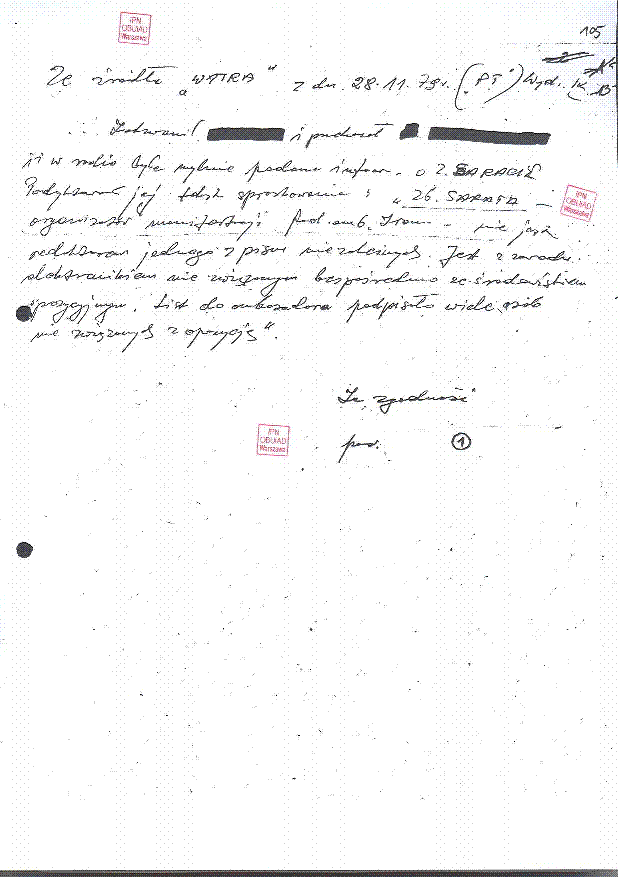 IPN
OBUiAD
Warszawa
105
Ze źródła „WATRA" z dn. 28.11.79r. („PT") Wyd. IX
Zadzwonił i podał
iż w radio była mylnie podana inform. o Z.
Podyktował jej tekst sprostowania: „Zb. SARATA –
organizator manifestacji pod amb. Iranu – nie jest
redaktorem jednego z pism niezależnych. Jest z zawodu
elektronikiem nie związanym bezpośrednio ze środowiskiem
opozycyjnym. List do ambasadora podpisało wiele osób
nie związanych z opozycją".
IPN
OBUiAD
Warszawa
Za zgodność
IPN
OBUiAD
Warszawa
1